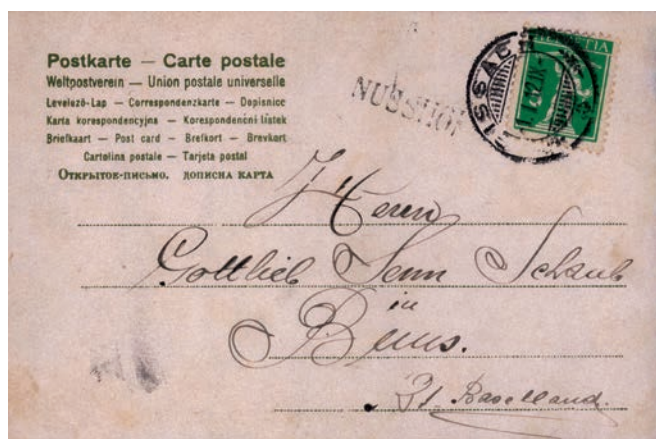 Postkarte — Carte postale
Weltpostverein — Union postale universelle
Levelező-Lap — Correspondenzkarte — Dopisnice
Karta korespondencyjna — Korespondenční lístek
Briefkaart — Post card — Brefkort — Brevkort
Cartolina postale — Tarjeta postal
Открытое-письмо. дописна карта
NUSSHOF
SISSACH
HELVETIA
Herrn
Gottlieb Senn Schaub
in
Buus.
Baselland.